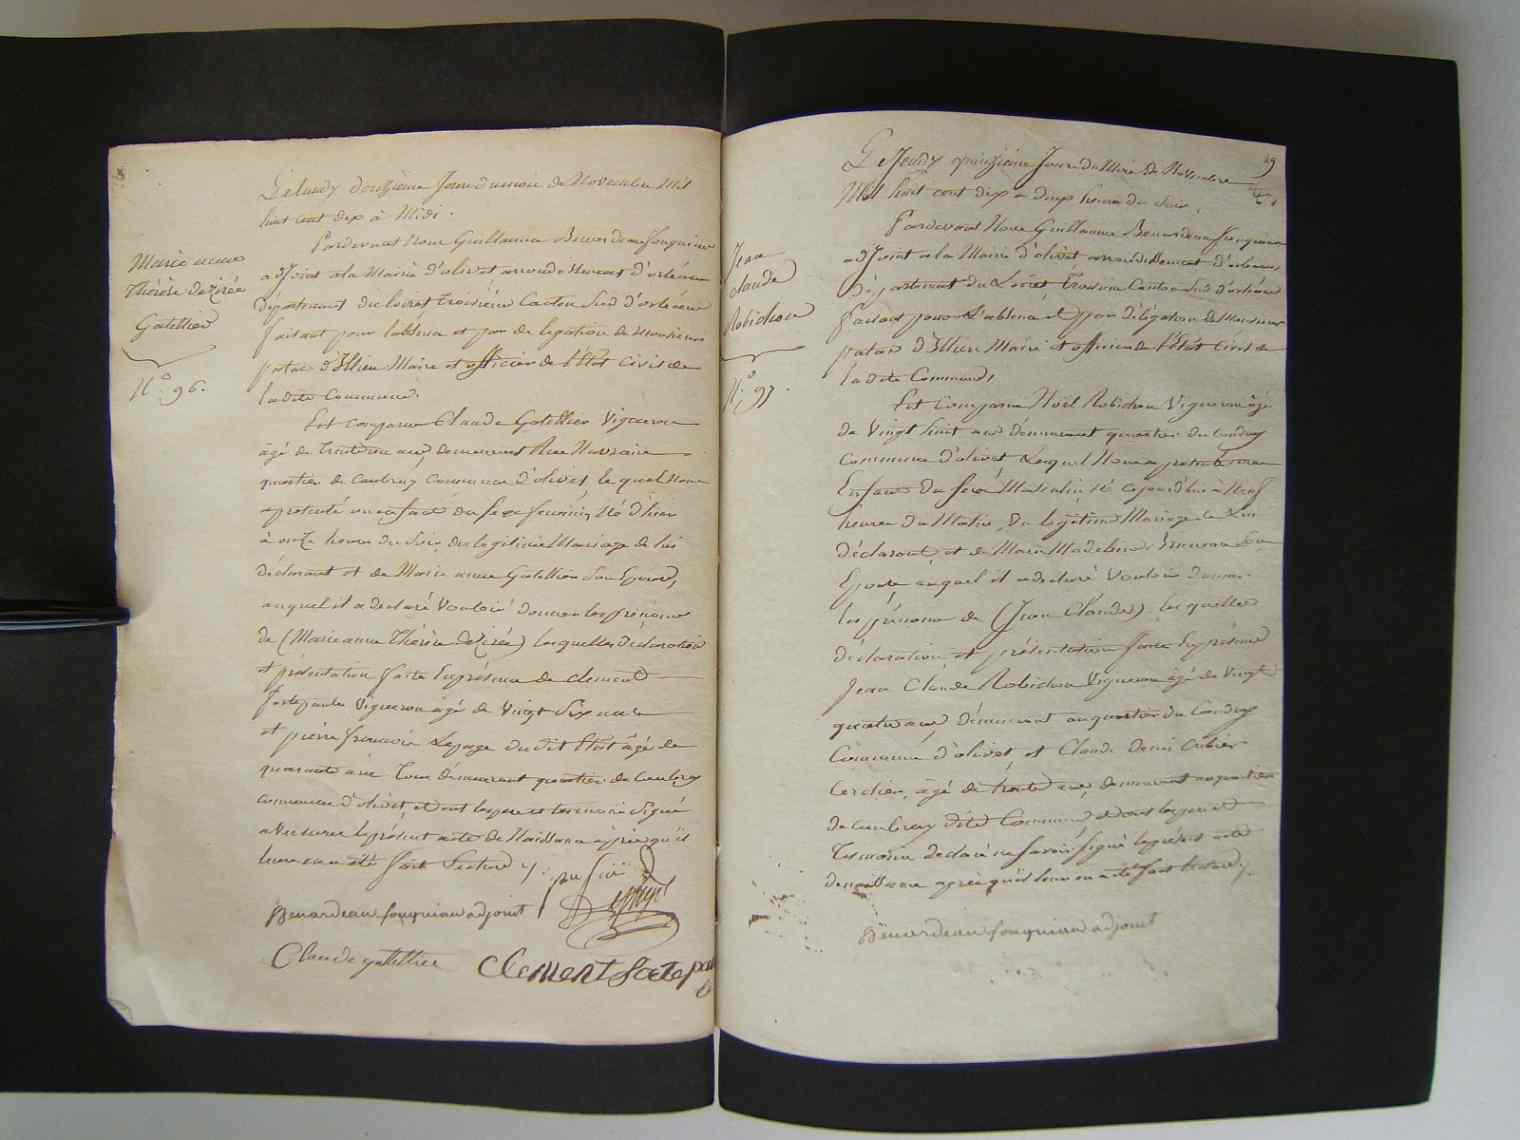 Le lundy douzieme Jour du mois de Novembre Mil
huit cent dix à Midi.
Pardevant Nous Guillaume Benardeau fouqueau
adjoint a la Mairie d'olivet arrondissement d'orleans
département du loiret troisieme Canton Sud d'orleans
faisant pour labsence et par délegation de Monsieur
patas d'Illiers Maire et officier de l'Etat Civil de
ladite Commune.
Marie anne
thérèse dezirée
Gatellier
N.o 96.
Est comparu Claude Gatellier Vigneron
âgé de ans, demeurant Rue
quartier de Caubray Commune d'olivet, lequel Nous
a présenté un enfant du Sexe feminin, né d'hier
à onze heures du Soir, du legitime Mariage de lui
déclarant et de Marie anne Gatellier Son Epouse,
auquel il a declaré Vouloir donner les prénoms
de (Marie anne thérèse dezirée) lesquelles déclaration
et présentation faite En présence de clement
fortepaule Vigneron âgé de Vingt Six ans
et pierre francois Lepage du dit Etat âgé de
quarante ans tous demeurant quartier de Caubray
commune d'olivet, et ont le pere et temoins Signé
avec nous le présent acte de Naissance après qu'il
leur en a été fait Lecture
Benardeau fouqueau adjoint
Claude gatellier
Clement fortepau
29
Le Jeudy quinzieme Jour du Mois de Novembre
Mil huit cent dix a deux heures du Soir.
Pardevant Nous Guillaume Benardeau fouqueau
adjoint a la Mairie d'olivet arrondissement d'orleans,
département du Loiret, troisieme Canton Sud d'orleans
faisant pour L'absence et par délégation de Monsieur
patas d'Illiers Maire et officier de l'Etat Civil de
ladite Commune,
Jean
claude
Robichon
N.o 97.
Est comparu Noël Robichon Vigneron âgé
de Vingt huit ans demeurant quartier du Coudray
commune d'olivet Lequel Nous a présenté un
Enfant du Sexe Masculin né cejourd'hui à Neuf
heures du Matin, du legitime Mariage de Lui
déclarant, et de Marie Madeleine Son
Epouse, auquel il a declaré Vouloir donner
les prénoms de (Jean Claude) lesquelles
déclaration et présentation faite En présence
Jean Claude Robichon Vigneron âgé de Vingt
quatre ans, demeurant au quartier du Coudray
Commune d'olivet, et Claude Denis
Cerclier, âgé de trente ans, demeurant au quartier
de Caubray dite Commune et ont les pere et
temoins declaré ne savoir signé le présent acte
de naissance après qu'il leur en a été fait lecture
Benardeau fouqueau adjoint